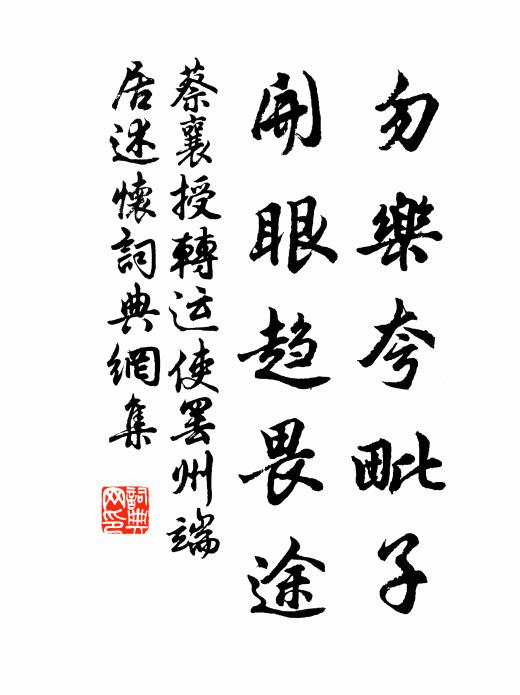 勿樂夸毗子
開眼趋畏途
蔡襄授轉运使罢州端
居述懷詞典網集
詞典网印